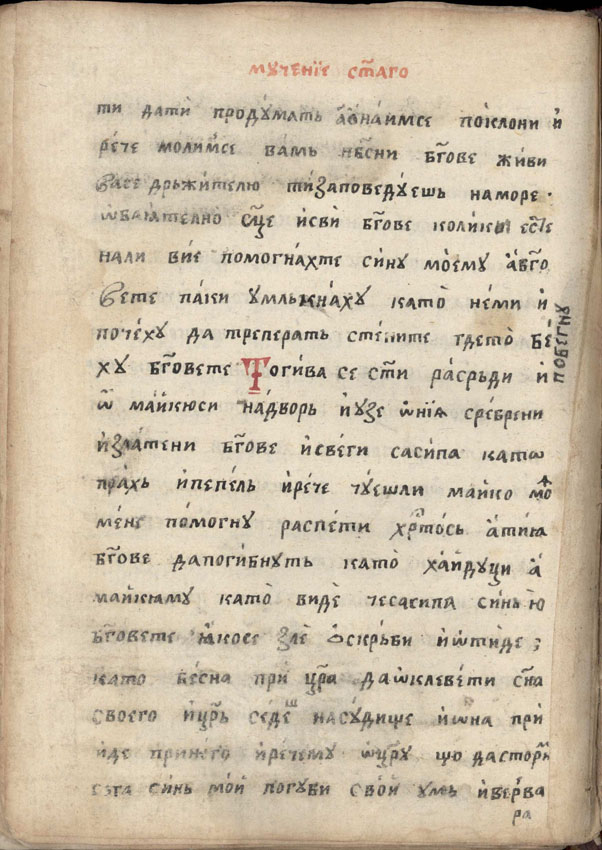 мученїе ст҃аго
ти датѝ продꙋматъ а҆внаимсе поклони и҆
рѐче молимсе вамъ нб҃сни бг҃ове живи
васе дръжителю тизаповедꙋешь наморе ·
ѡбаꙗтелно сл҃це исвѝ бг҃ове колики есте
нали вїе помогна́хте сину моемꙋ а҆вг҃о
вете па́ки умлькна́хꙋ като̀ не́ми и҆
поче́хꙋ да треперать сте́ните гдето̀ бе́
хꙋ бг҃овете Тоги́ва се ст҃и ра́сръди и҆
ѿ ма́йкюси на́дворь и҆узе ѡ҆нїѧ сребрени
и҆зла́тени бг҃ове исве́ги сасипа катѡ
пра́хь ипе́пель и҆ре́че чꙋешли майко мо
ме́не по́могнꙋ распе́ти хр҃то́сь а҆тиꙗ
бг҃ове дапоги́бнꙋть като̀ ха́йдꙋци а҆
майкюмꙋ като̀ виде че́сасипа синь ю
бг҃овете ꙗ҆косе злѐ ѻ҆скръ́би иѡти́де ;
като бе́сна при цр҃а даѡклеве́ти сн҃а
своего ицр҃ь седеш насꙋ́дище иѡна при
и҆де принего и҆ре́чемꙋ ѡцр҃ꙋ що дасторꙗ
сега синь мой погуби свой умь иве́рꙋва
ра
побегнꙋ